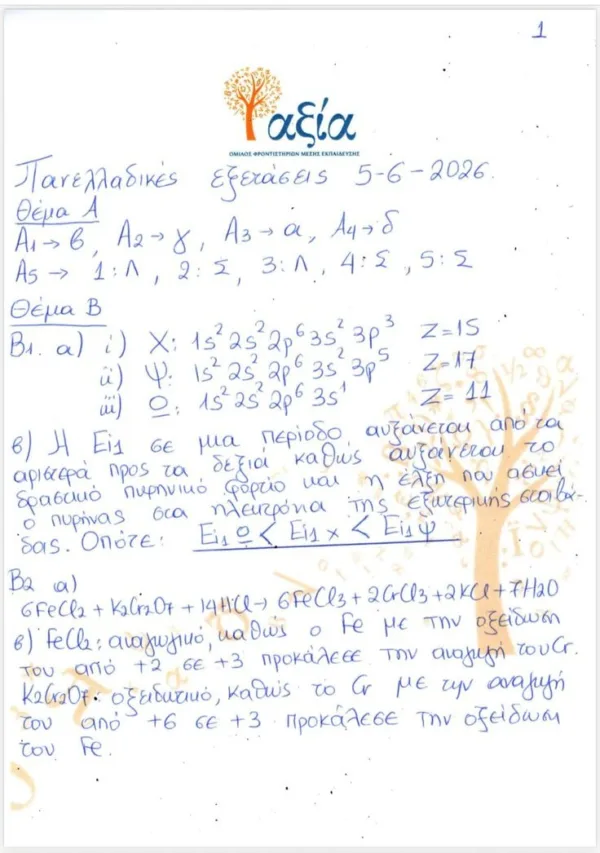 1
αξία
ΟΜΙΛΟΣ ΦΡΟΝΤΙΣΤΗΡΙΩΝ ΜΕΣΗΣ ΕΚΠΑΙΔΕΥΣΗΣ
Πανελλαδικές εξετάσεις 5-6-2026.
Θέμα Α
Α1→β, Α2→γ, Α3→α, Α4→δ
Α5 → 1:Λ, 2:Σ, 3:Λ, 4:Σ, 5:Σ
Θέμα Β
Β1. α) i) Χ: 1s² 2s² 2p⁶ 3s² 3p³ Z=15
ii) Ψ: 1s² 2s² 2p⁶ 3s² 3p⁵ Z=17
iii) Ω: 1s² 2s² 2p⁶ 3s¹ Z=11
β) Η Ei1 σε μια περίοδο αυξάνεται από τα
αριστερά προς τα δεξιά καθώς αυξάνεται το
δραστικό πυρηνικό φορτίο και η έλξη που ασκεί
ο πυρήνας στα ηλεκτρόνια της εξωτερικής στοιβά-
δας. Οπότε: Ei1 Ω < Ei1 Χ < Ei1 Ψ
Β2 α)
6FeCl2 + K2Cr2O7 + 14HCl → 6FeCl3 + 2CrCl3 + 2KCl + 7H2O
β) FeCl2: αναγωγικό, καθώς ο Fe με την οξείδωση
του από +2 σε +3 προκάλεσε την αναγωγή του Cr.
K2Cr2O7: οξειδωτικό, καθώς το Cr με την αναγωγή
του από +6 σε +3 προκάλεσε την οξείδωση
του Fe.